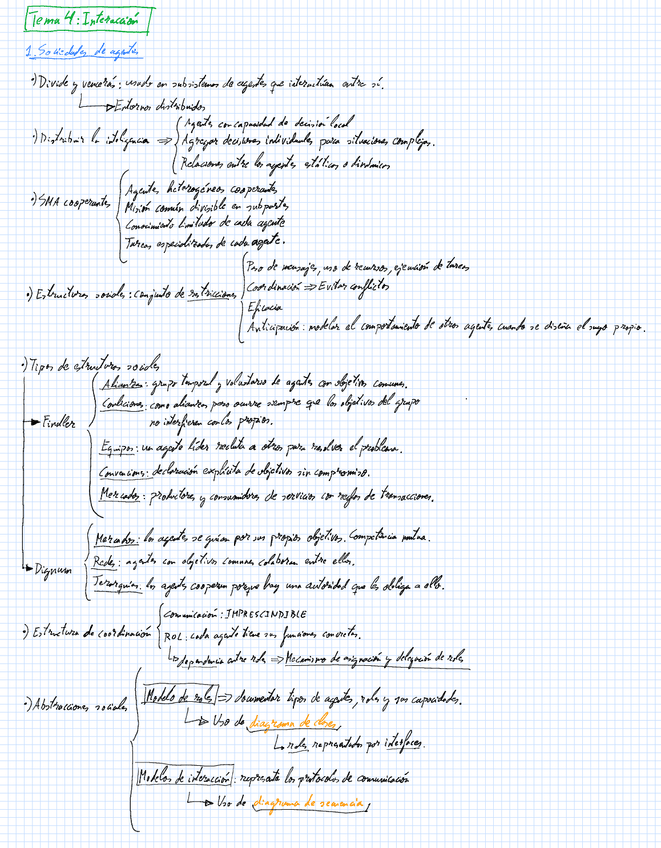 Tema 4: Interacción
1. Sociedades de agentes
•) Divide y vencerás: usado en subsistemas de agentes que interactúan entre sí.
Entornos distribuidos
•) Distribuir la inteligencia ⇒
Agentes con capacidad de decisión local
Agregar decisiones individuales para situaciones complejas.
Relaciones entre los agentes estáticas o dinámicas
•) SMA cooperantes
Agentes heterogéneos cooperantes
Misión común divisible en subpartes
Conocimiento limitado de cada agente
Tareas especializadas de cada agente.
•) Estructuras sociales: conjunto de restricciones
Paso de mensajes, uso de recursos, ejecución de tareas
Coordinación ⇒ Evitar conflictos
Eficacia
Anticipación: modelar el comportamiento de otros agentes cuando se diseña el suyo propio.
•) Tipos de estructuras sociales
Findler
Alianzas: grupo temporal y voluntario de agentes con objetivos comunes.
Coaliciones: como alianzas pero ocurre siempre que los objetivos del grupo
no interfieran con los propios.
Equipos: un agente líder recluta a otros para resolver el problema.
Convenciones: declaración explícita de objetivos sin compromiso.
Mercados: productores y consumidores de servicios con reglas de transacciones.
Dignum
Mercados: los agentes se guían por sus propios objetivos. Competencia mutua.
Redes: agentes con objetivos comunes colaboran entre ellos.
Jerarquías: los agentes cooperan porque hay una autoridad que les obliga a ello.
•) Estructura de coordinación
Comunicación: IMPRESCINDIBLE
ROL: cada agente tiene sus funciones concretas.
dependencia entre roles ⇒ Mecanismo de asignación y delegación de roles
•) Abstracciones sociales
Modelo de roles ⇒ documentar tipos de agentes, roles y sus capacidades.
Uso de diagrama de clases
roles representados por interfaces.
Modelos de interacción: representa los protocolos de comunicación
Uso de diagrama de secuencia